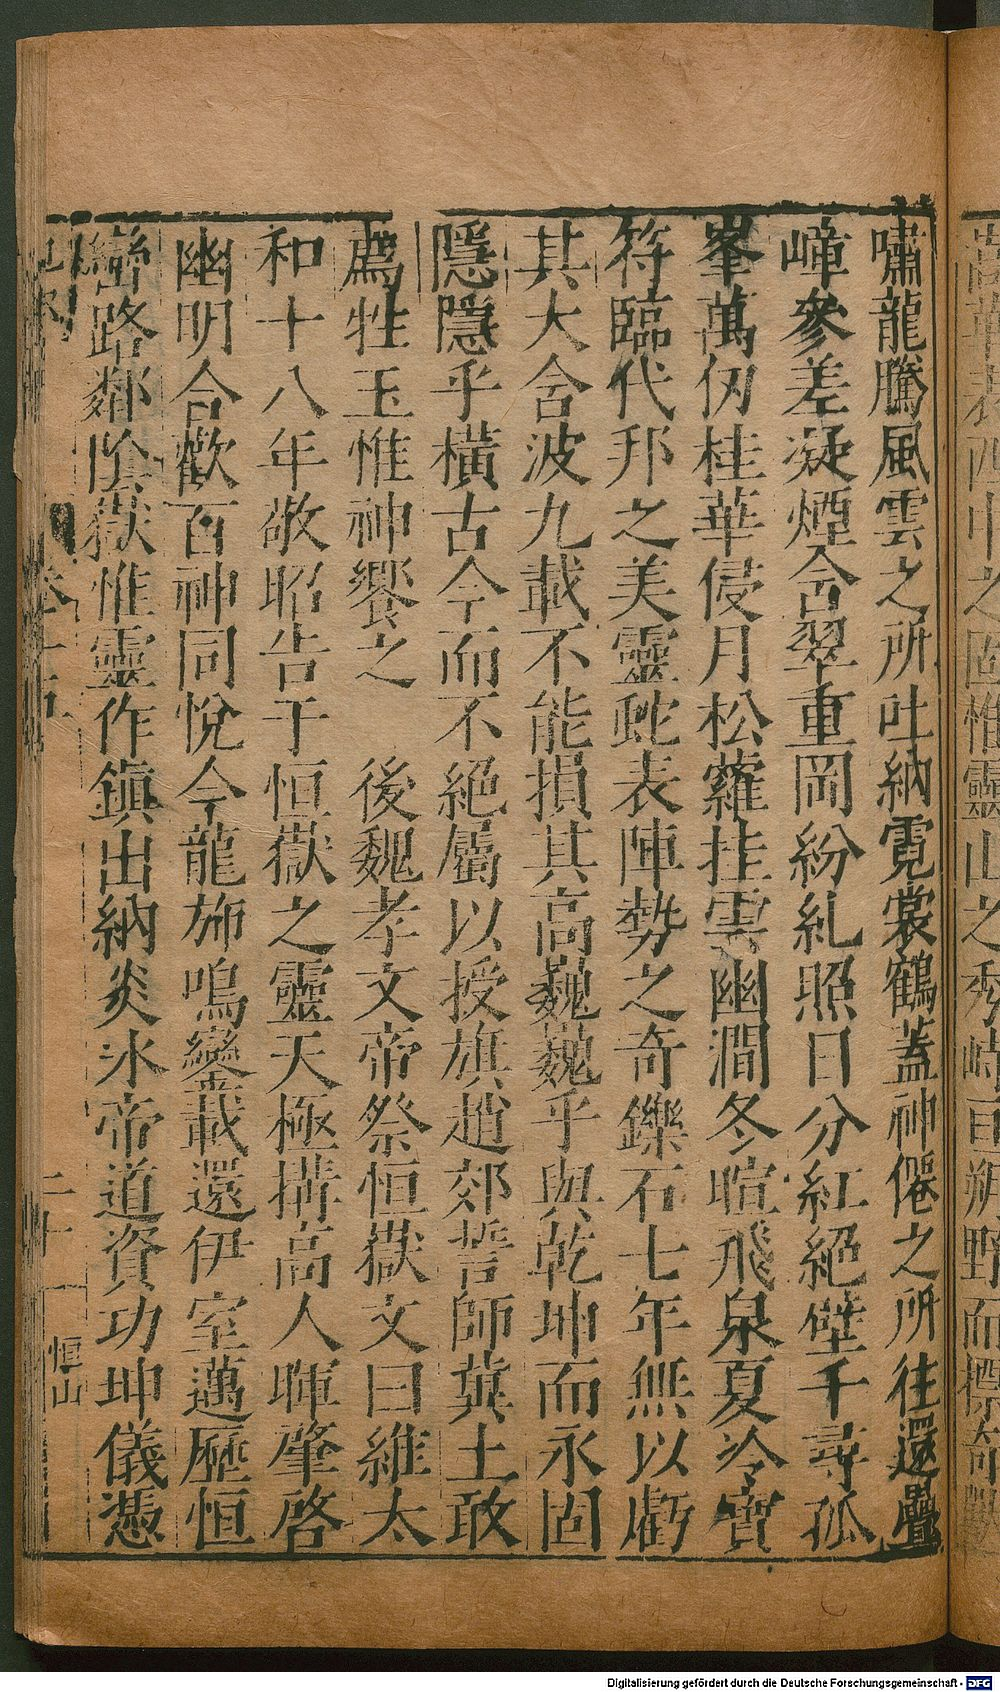 嘯龍騰風雲之所吐納霓裳鶴蓋神僊之所往還疊
嶂參差凝煙含翠重岡紛糺照日分紅絕壁千尋孤
峯萬仞桂華侵月松蘿挂雲幽澗冬暄飛泉夏冷寶
符臨代邦之美靈虵表陣勢之奇鑠石七年無以虧
其大舍波九載不能損其高巍巍乎與乾坤而永固
隱隱乎橫古今而不絕屬以授旗趙郊誓師冀土敢
薦牲玉惟神饗之　後魏孝文帝祭恒嶽文曰維太
和十八年敬昭告于恒嶽之靈天極搆高人暉肇啓
幽明合歡百神同悅今龍斾鳴鑾載還伊室邁歷恒
巒路鄰陰嶽惟靈作鎮出納炎冰帝道資功坤儀憑
卷十五
二十
恒山
Digitalisierung gefördert durch die Deutsche Forschungsgemeinschaft - DFG